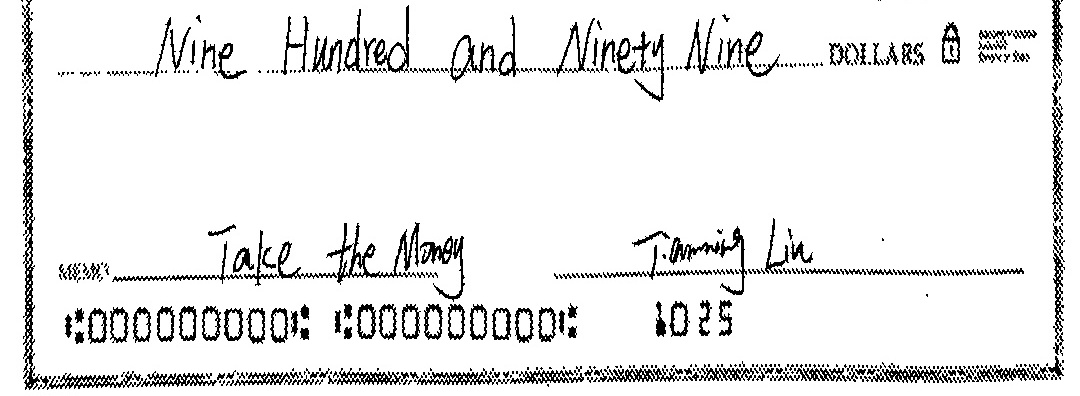 Nine Hundred and Ninety Nine DOLLARS
MEMO Take the Money Tianming Liu
⑆000000000⑆ ⑆000000000⑆ 1025